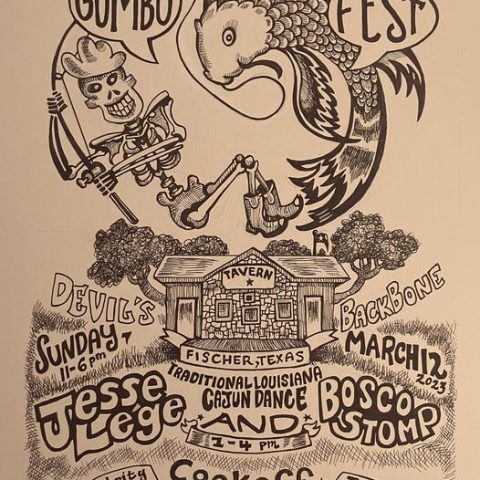 GUMBO
FEST
TAVERN
DEVIL'S
BACKBONE
FISCHER, TEXAS
SUNDAY
11-6 pm
MARCH 12
2023
TRADITIONAL LOUISIANA
CAJUN DANCE
Jesse
Lége
AND
1-4 pm
BOSCO
STOMP
Cookoff